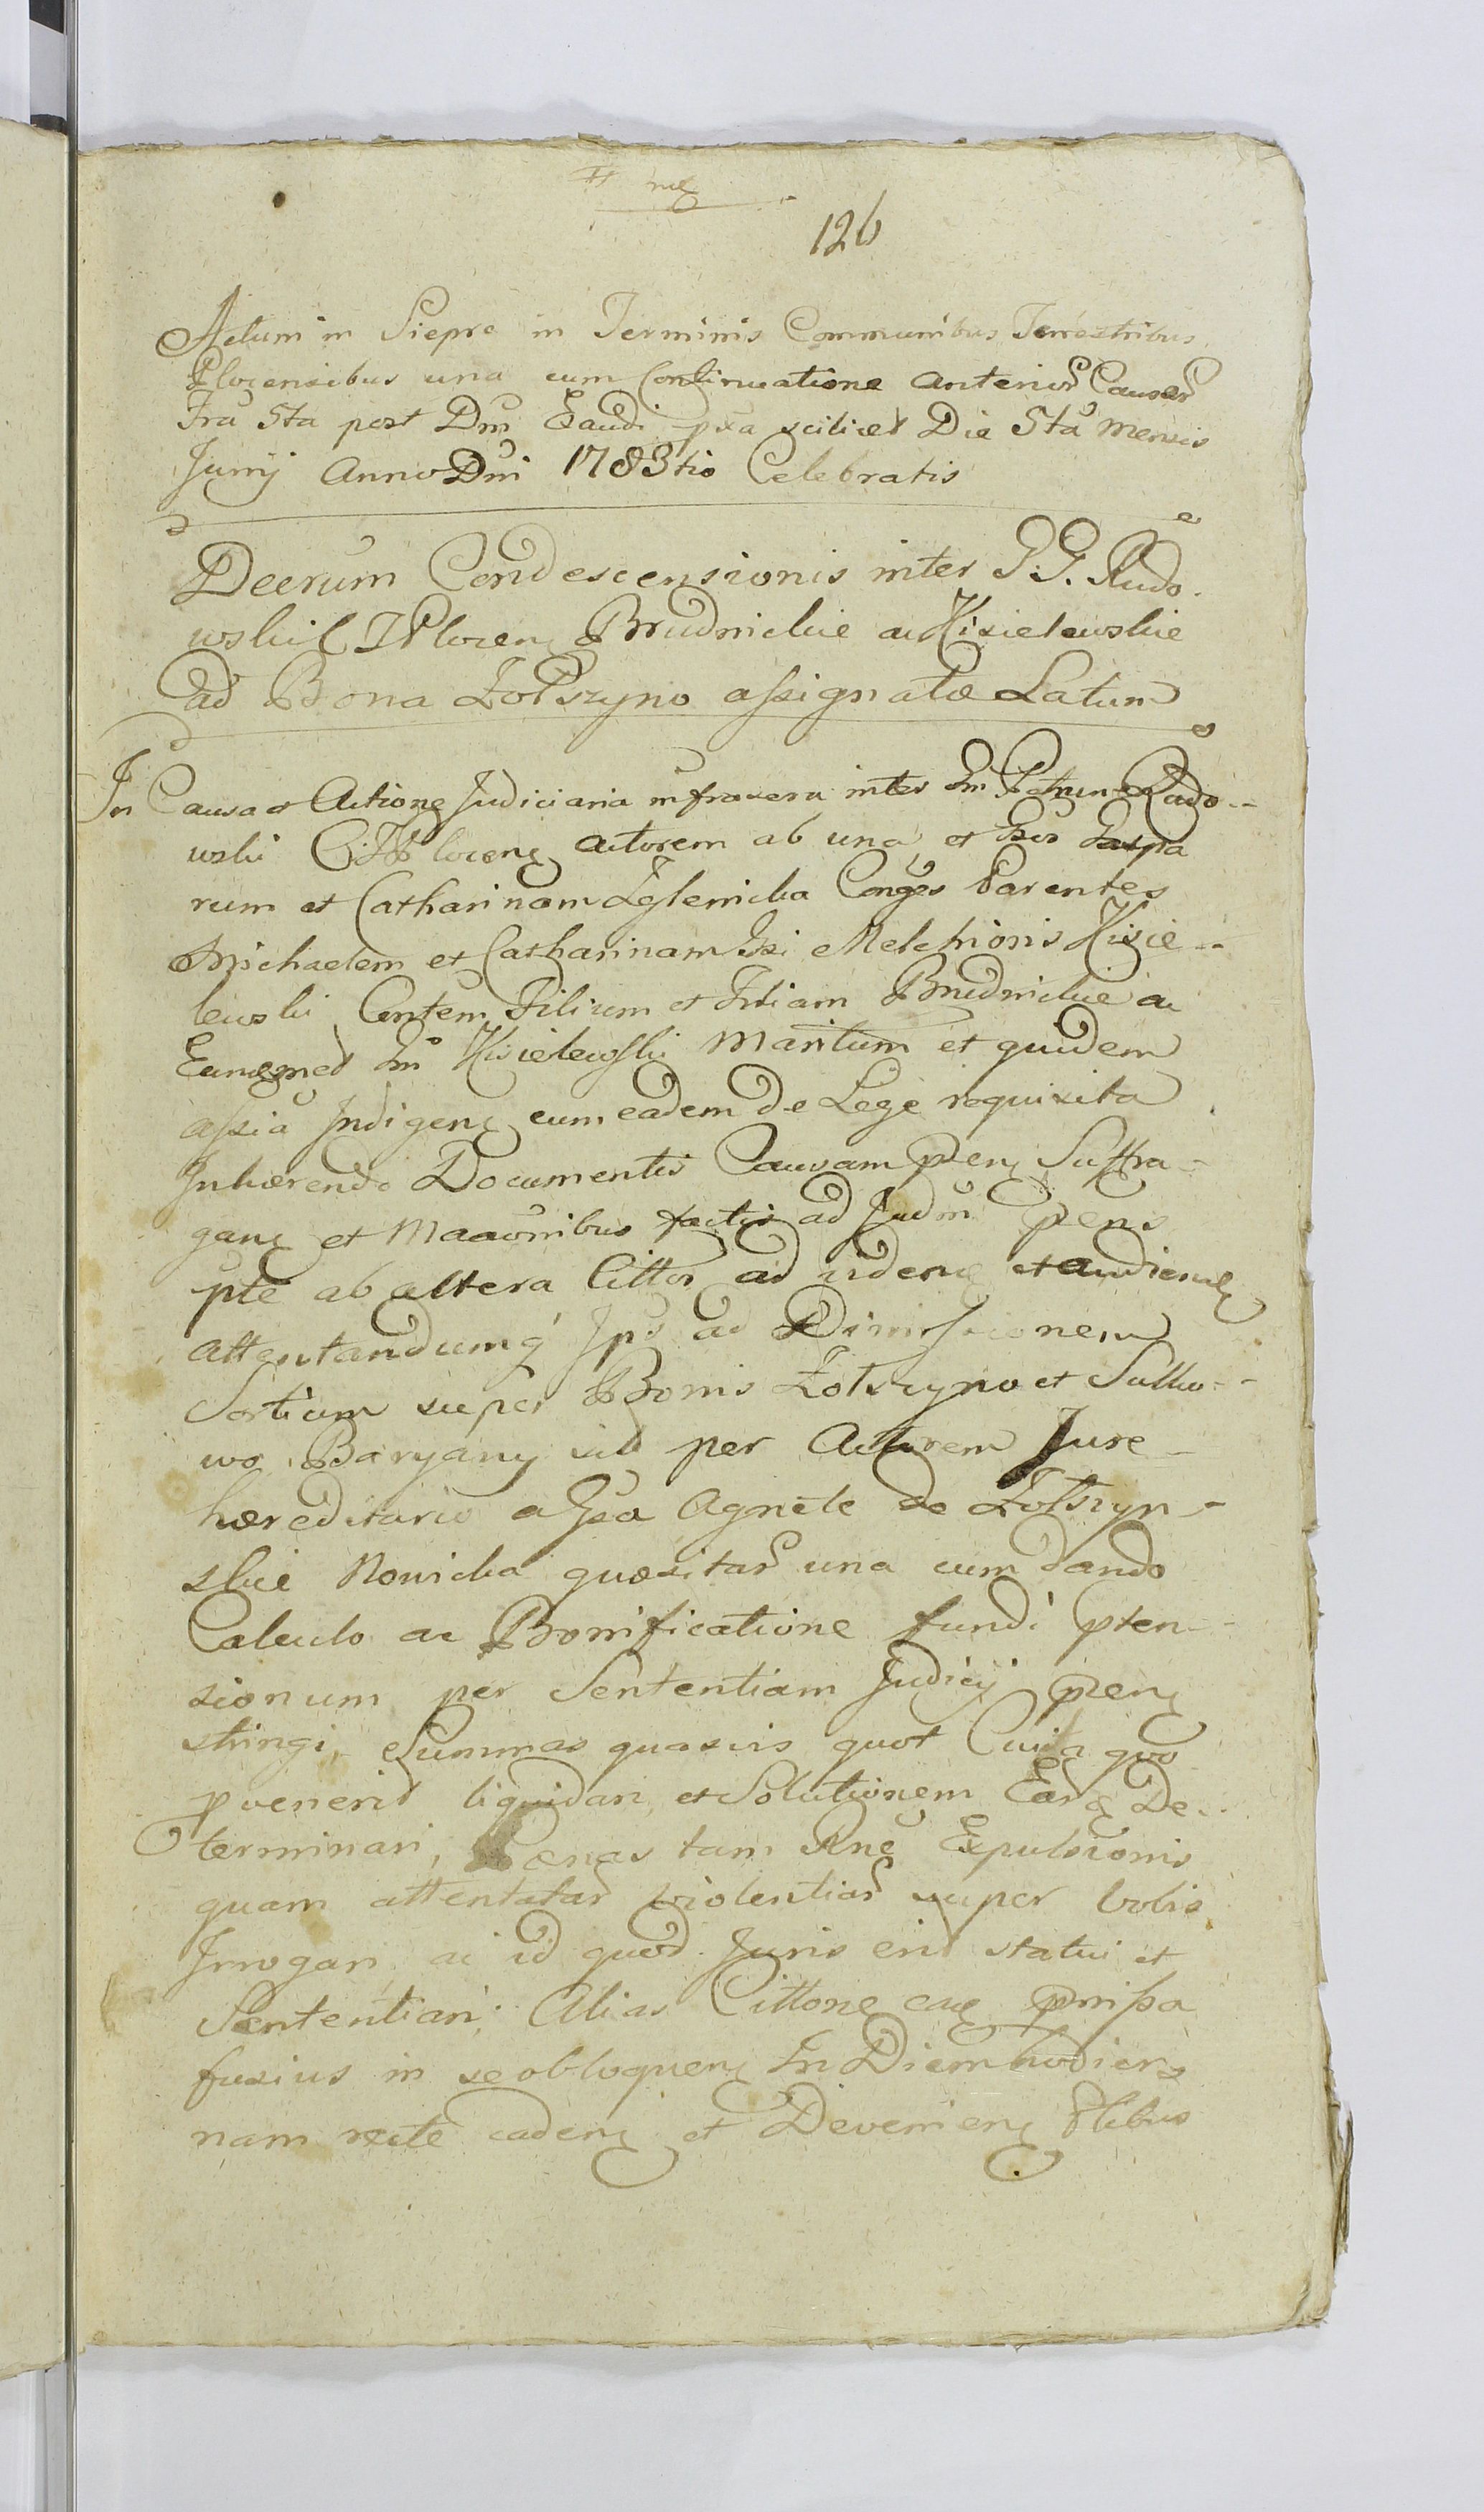 126
Actum in Siepre in Terminis Communibus Terrestribus
Plocensibus una cum Continuatione anterior Causar
Fra 5ta post Dm Exaudi pxa scilicet Die 5ta mensis
Junij Anno Dni 1783tio Celebratis
Decrum Condescensionis inter G. G. Rudo.
wski C T Plocen Brudnickie ac Kisielewskie
ad Bona Żółszyno assignatæ Latum
In Causa et Actione Judiciaria infrascra inter Gm Petrum Rudo--
wski C. T. Plocens actorem ab una, et Gsos Gaspa
rum et Catharinam Zglenicka Conges Parentes
Michaelem et Catharinam Gsi Melchioris Kisie--
lewski Contem Filium et Filiam Brudnickie ac
Eumqmet Gm Kisielewski Maritum et quidem
assia Indigen cum eadem de Lege requisita
Inhærendo Documentis Causam pen Suffra-
gan et Maaonibus factis ad Judm pens
pte ab altera Cittos ad viden et audiend
attentandumq Ips ad Dimissionem
Sortium super Bonis Żołszyno et Sulko--
wo Baryany sit per Actorem Jure-
hæreditario a Gsa Agnete de Żołszyn-
skie Nowicka quæsitar una cum dando
Calculo ac Bonificatione fundi pten--
sionum per Sententiam Judicij pen
stringi, Summas quasvis quot Cuiq quo
pvenerit liquidari, et Solutionem Earq De--
terminari, Pænas tam Rne Expulsionis
quam attentatar violentiar super Vobis
Irrogari ac id quod Juris erit statui et
Sententiari. Alias Cittone eaq pmissa
fusius in se obloquen In Diem hodier
nam recte caden et Devenien Ptibus